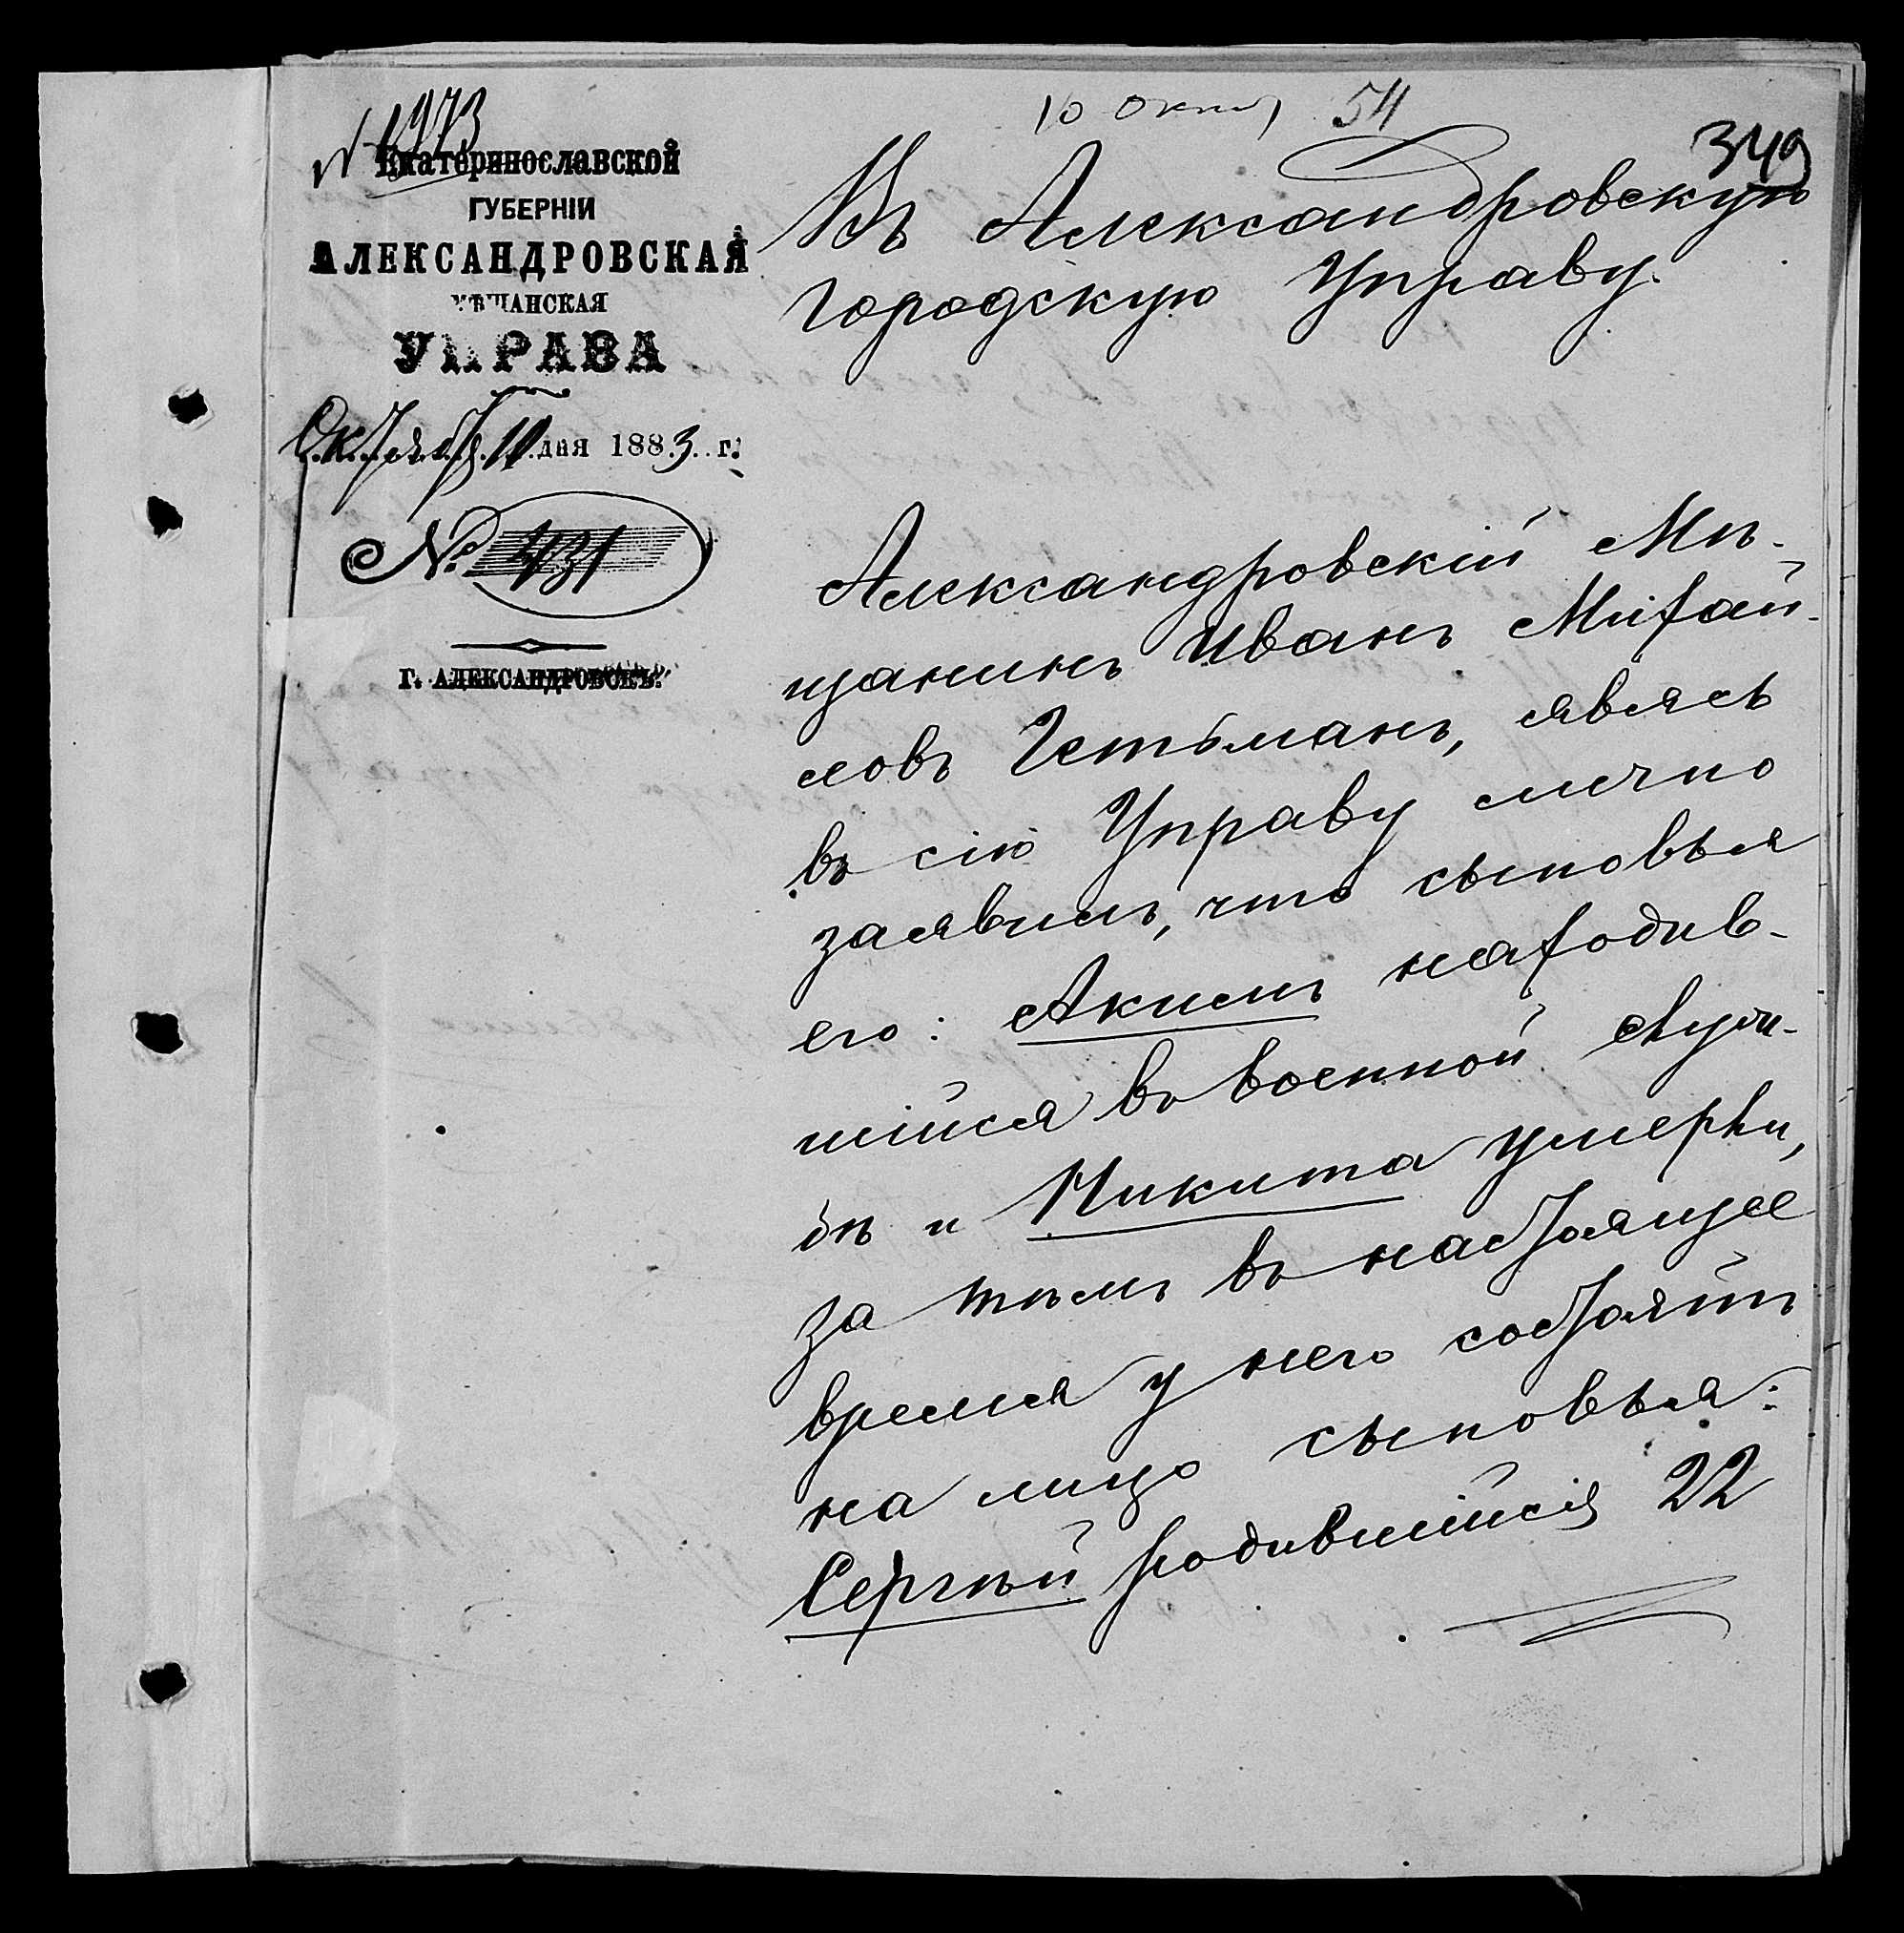 10 Октяб 54
349
№ 1973
Екатеринославской
ГУБЕРНІИ
АЛЕКСАНДРОВСКАЯ
МѢЩАНСКАЯ
УПРАВА
Октября 10 дня 1883 г.
№ 431
Г. АЛЕКСАНДРОВСКЪ.
Въ Александровскую
Городскую Управу.
Александровскій Мѣ-
щанинъ Иванъ Михай-
ловъ Гетьманъ, явясь
въ сію Управу лично
заявилъ, что сыновья
его: Акимъ находив-
шійся въ военной служ-
бѣ и Никита умерли,
за тѣмъ въ настоящее
время у него состоятъ
на лицо сыновья:
Сергѣй родившійся 22